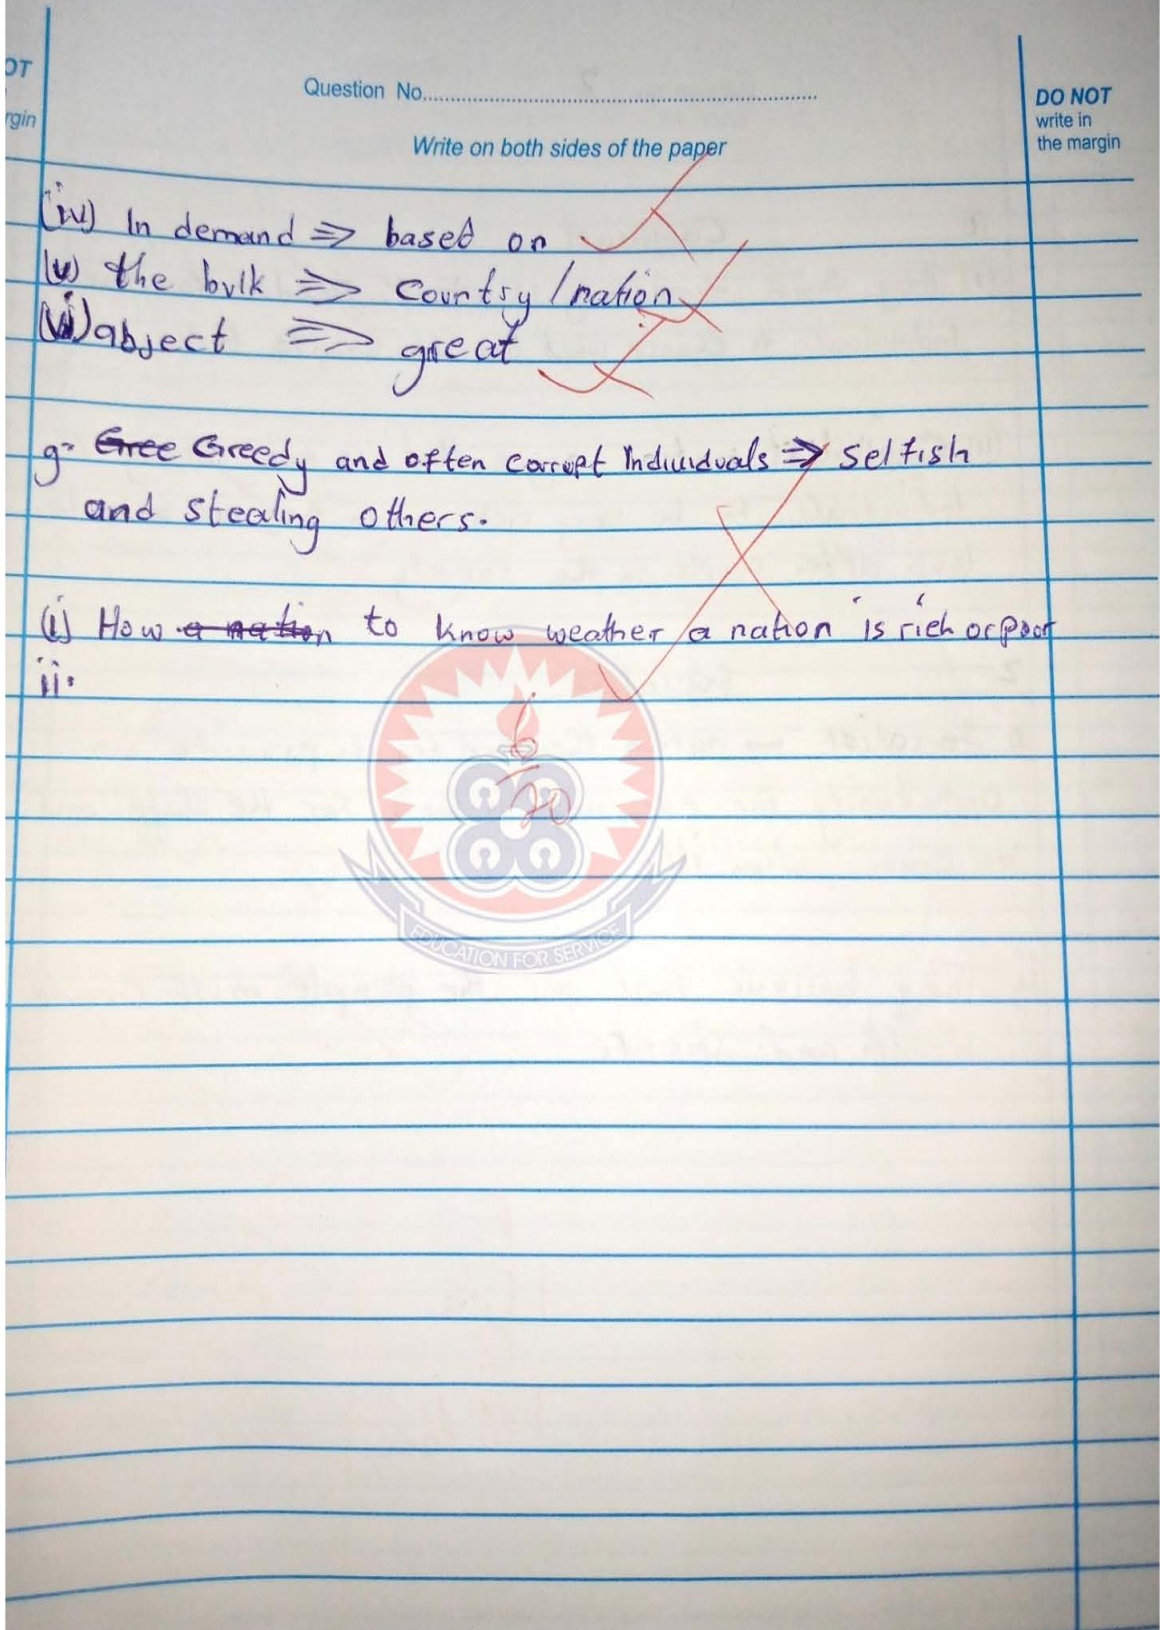 OT
rgin
Question No..........
DO NOT
write in
the margin
Write on both sides of the paper
(iv) In demand ⇒ based on
(v) the bulk ⇒ Country / nation
(vi) abject ⇒ great
g- Gree Greedy and often corrupt Individuals ⇒ Selfish
and stealing others.
(i) How a nation to know weather a nation is rich or poor
ii.
6
20
EDUCATION FOR SERVICE